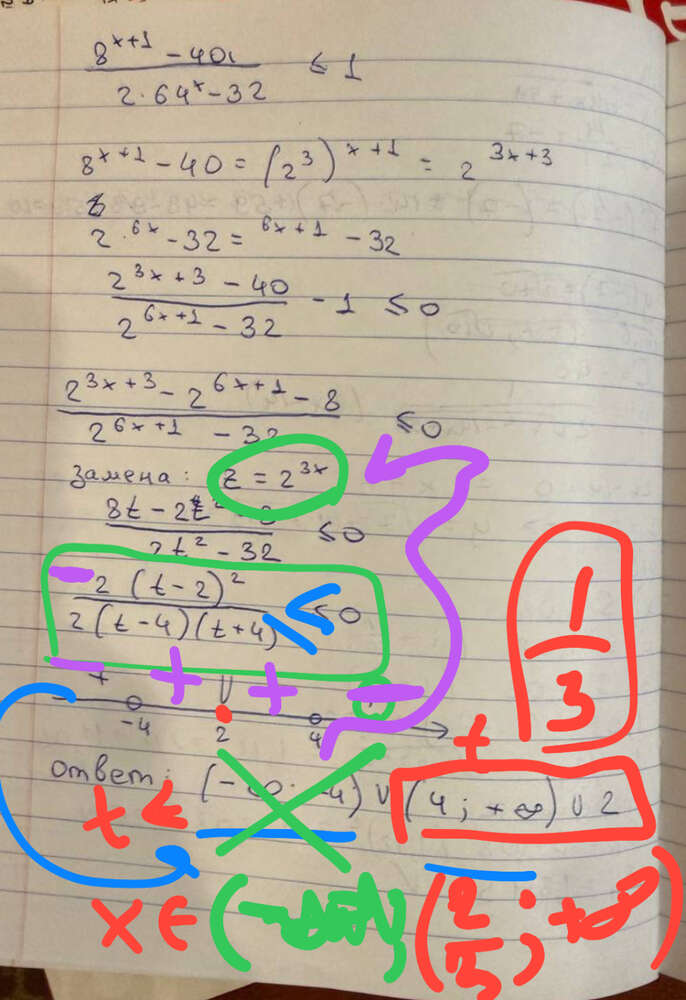 8^{x+1} - 40
2·64^x - 32
≤ 1
8^{x+1} - 40 = (2^3)^{x+1} = 2^{3x+3}
2^{6x} - 32 = ^{6x+1} - 32
2^{3x+3} - 40
2^{6x+1} - 32
- 1 ≤ 0
2^{3x+3} - 2^{6x+1} - 8
2^{6x+1} - 32
≤ 0
замена: t = 2^{3x}
8t - 2t^2
2t^2 - 32
≤ 0
- 2(t-2)^2
2(t-4)(t+4)
≤ 0
1
3
- + + -
-4 2 4
t
ответ: (-∞; -4) ∪ (4; +∞) ∪ 2
t <
x ∈ ( (2/3; +∞)